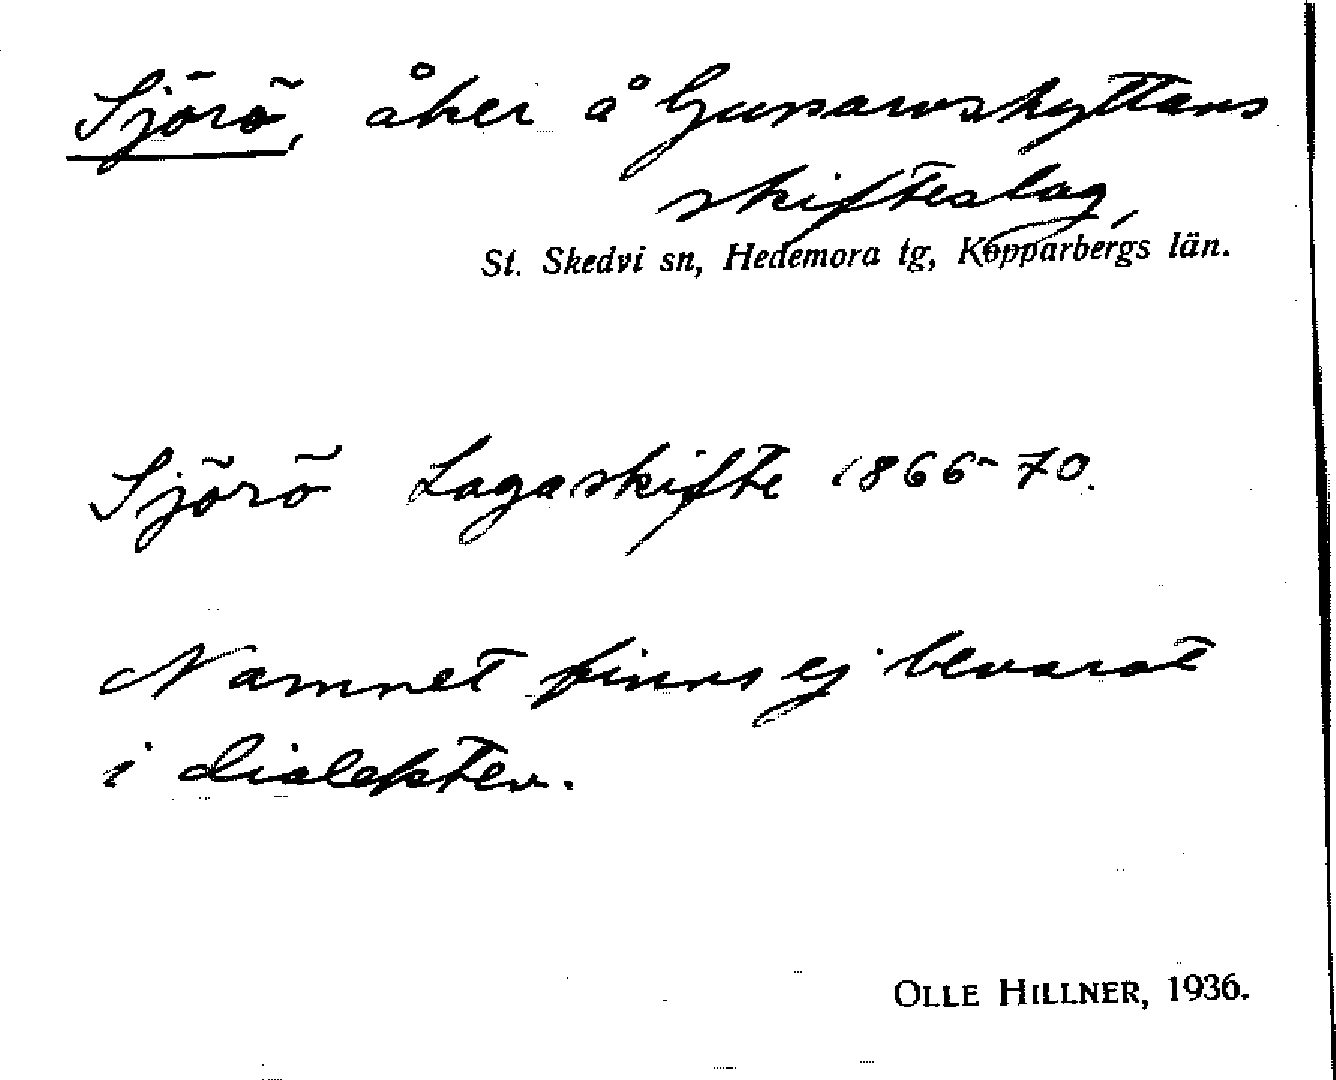 Sjörö, åker å Gunnarshyttans
skifteslag,
St. Skedvi sn, Hedemora tg, Kopparbergs län.
Sjörö Lagaskifte 1866-70.
Namnet finns ej bevarat
i dialekten.
OLLE HILLNER, 1936.